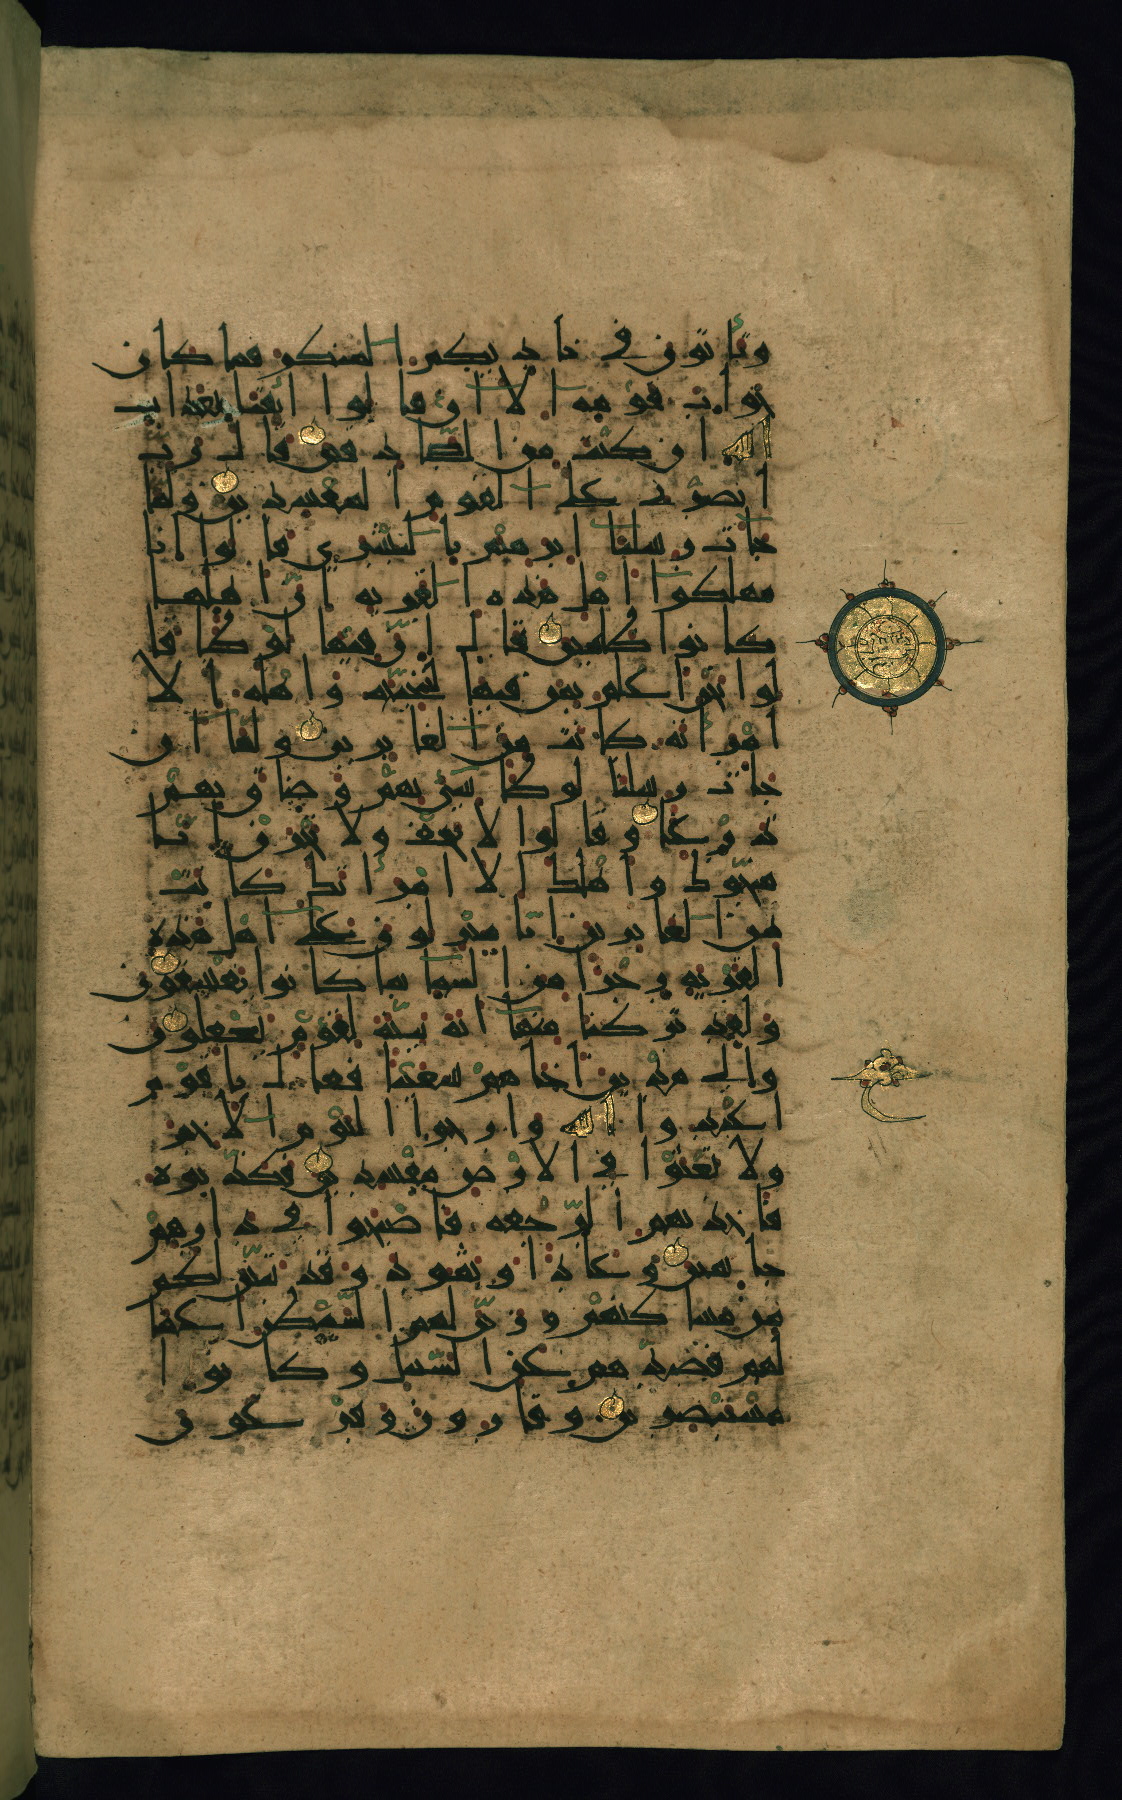 وتأتون في ناديكم المنكر فما كان
جواب قومه الا ان قالوا ائتنا بعذاب
الله ان كنت من الصادقين قال رب
انصرني على القوم المفسدين ولما
جات رسلنا ابرهيم بالبشرى قالوا انا
مهلكوا اهل هذه القرية ان اهلها
كانوا ظلمين قال ان فيها لوطا قا
لوا نحن اعلم بمن فيها لننجينه واهله الا
امرأته كانت من الغابرين ولما ان
جات رسلنا لوطا سئ بهم وضاق بهم
ذرعا وقالوا لا تخف ولا تحزن انا
منجوك واهلك الا امرأتك كانت
من الغابرين انا منزلون على اهل هذه
القرية رجزا من السما بما كانوا يفسقون
ولقد تركنا منها اية بينة لقوم يعقلون
والى مدين اخاهم شعيبا فقال يا قوم
اعبدوا الله وارجوا اليوم الاخر
ولا تعثوا في الارض مفسدين فكذبوه
فاخذتهم الرجفة فاصبحوا في دارهم
جاثمين وعادا وثمود وقد تبين لكم
من مساكنهم وزين لهم الشيطن اعما
لهم فصدهم عن السبيل وكانوا
مستبصرين وقارون وفرعون